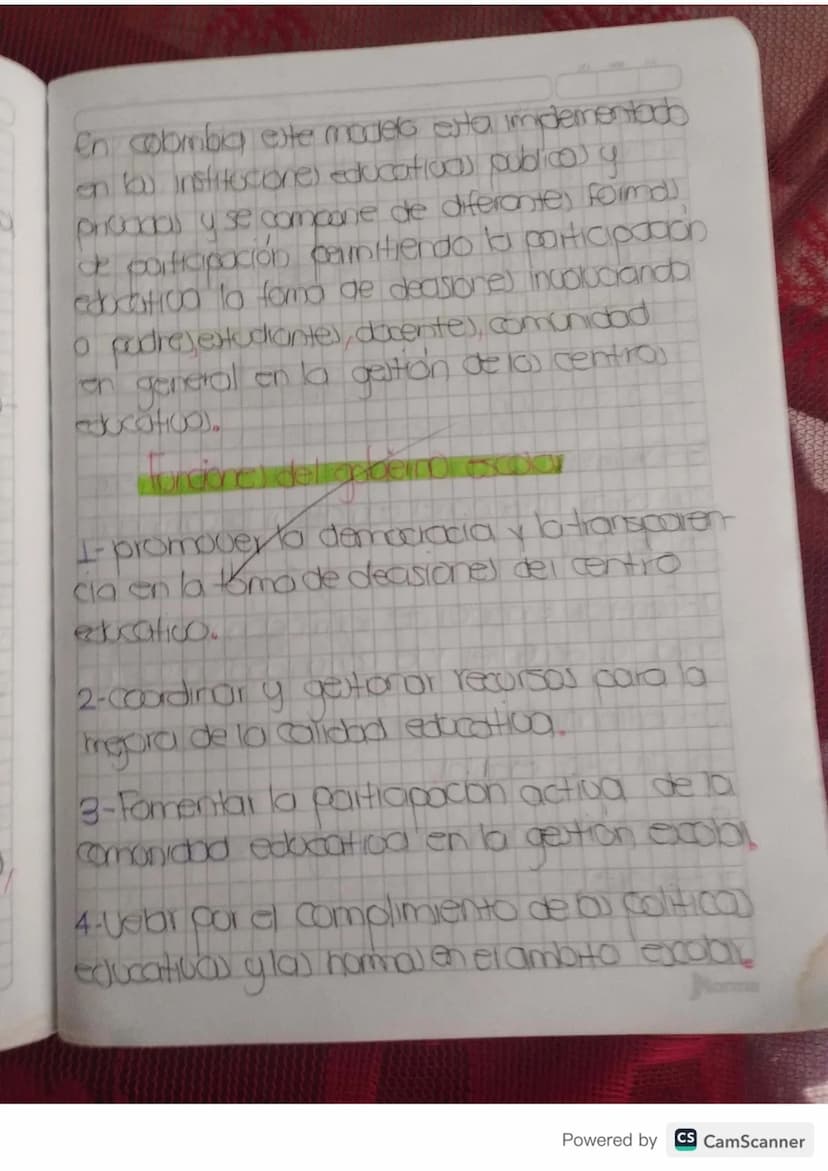 En colombia este modelo esta implementado
en las instituciones educativas publicas y
privadas y se compone de diferentes formas
de participación permitiendo la participación
educativa la toma de decisiones involucrando
a padres, estudiantes, docentes, comunidad
en general en la gestión de los centros
educativos.
Funciones del gobierno escolar
1-promover la democracia y la transparen-
cia en la toma de decisiones del centro
educativo.
2-coordinar y gestionar recursos para la
mejora de la calidad educativa.
3-Fomentar la participación activa de la
comunidad educativa en la gestión escolar.
4-Velar por el cumplimiento de las politicas
educativas y las normas en el ambito escolar.
Norma
Powered by CS CamScanner